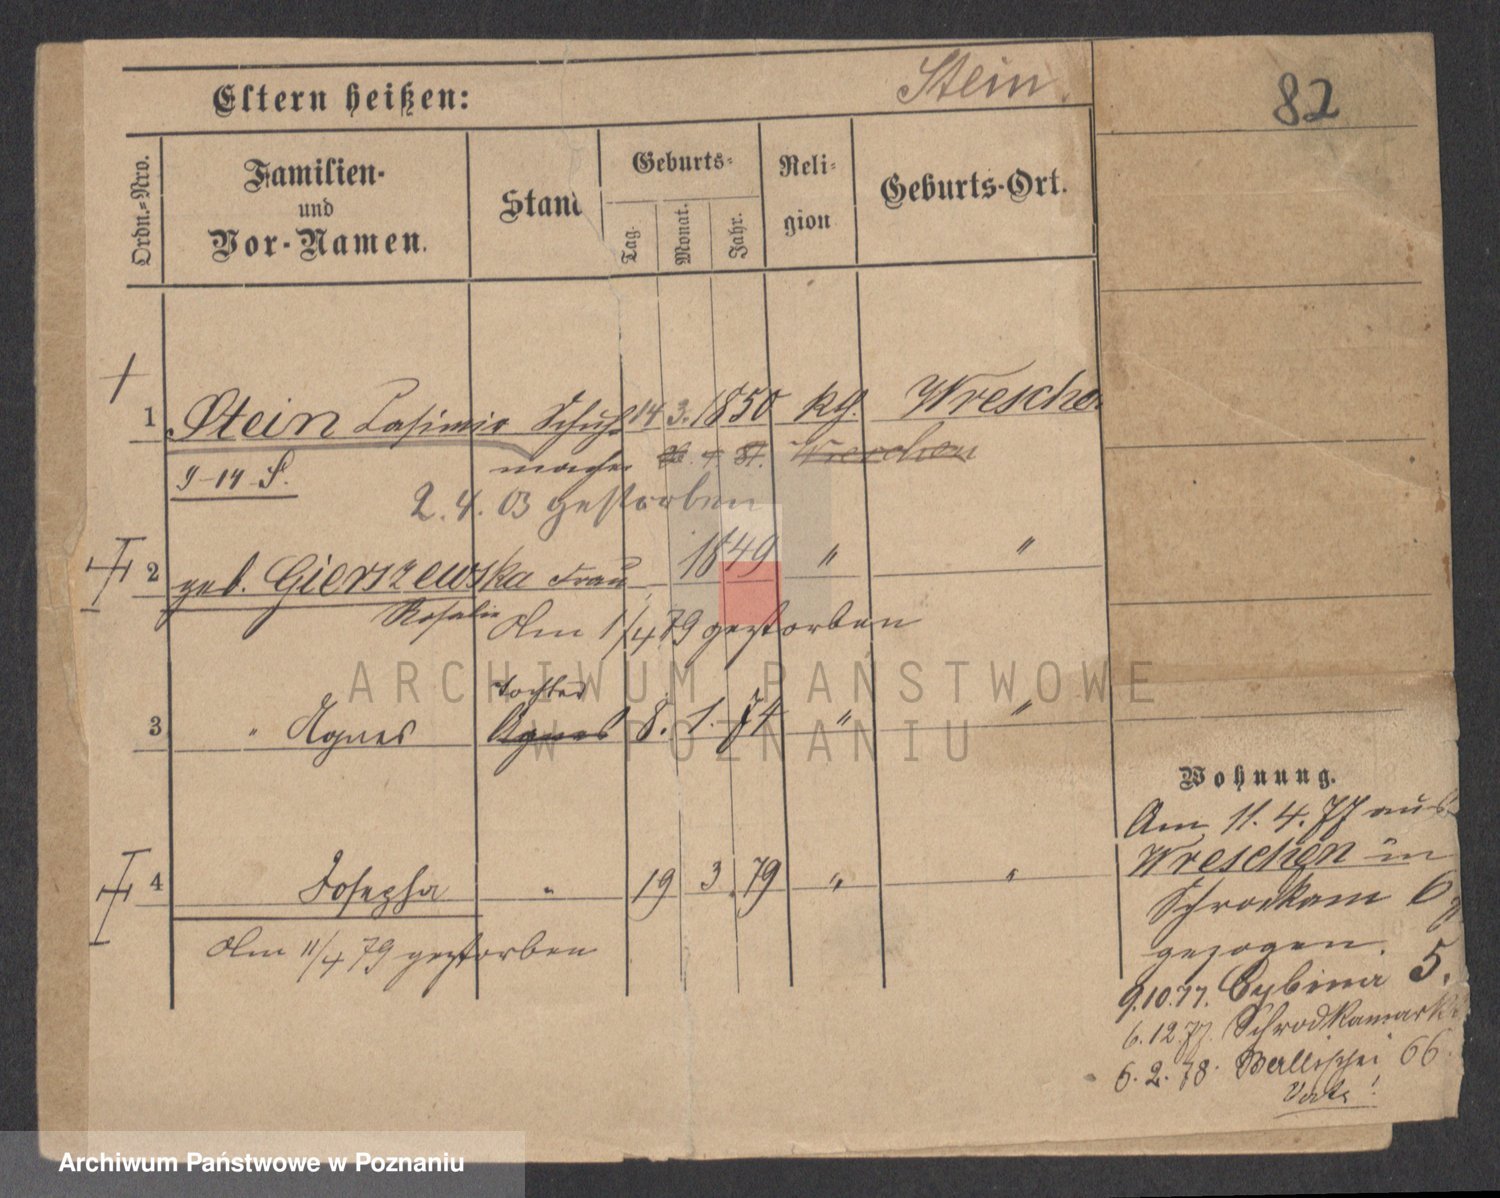 Eltern heißen:
Stein
82
Ordn.=Nro.
Familien-
und
Vor-Namen.
Stand
Geburts-
Tag.
Monat.
Jahr.
Reli-
gion
Geburts-Ort.
1 Stein Casimir Schuh- 14 3. 1850 kg. Wreschen
macher
9-14 S.
2. 4. 03 gestorben
2 geb. Gierszewska Frau 1849 " "
Rosalie
Am 1/4 79 gestorben
Tochter
3 " Agnes Agnes 8. 1. 74 " "
4 Josepha " 19 3. 79 " "
Am 11/4 79 gestorben
Wohnung.
Am 11. 4. 77 aus
Wreschen in
Schrodkam 6
gezogen.
9.10.77. Cybina 5.
6. 12. 77. Schrodkamarkt
6. 2. 78. Wallischei 66
ARCHIWUM PAŃSTWOWE
W POZNANIU
Archiwum Państwowe w Poznaniu